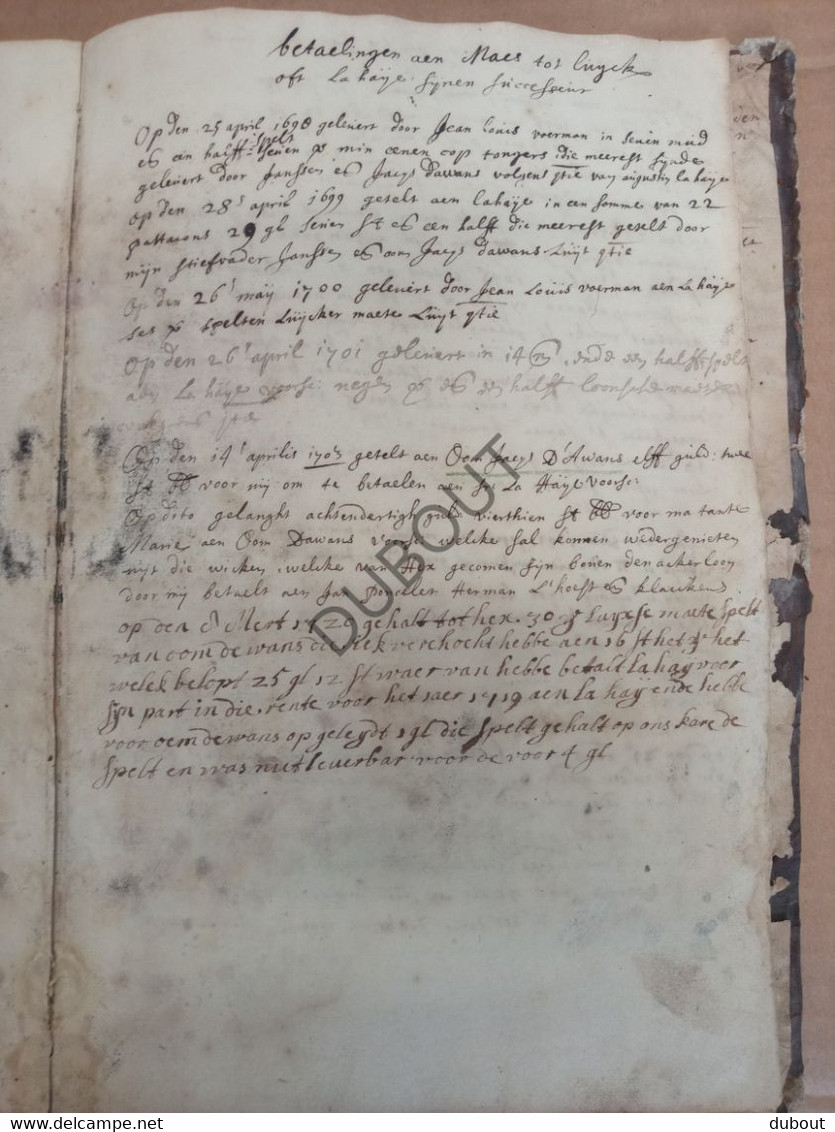 betaelingen aen Maes tot luyck
oft La haÿe sijnen successeur
Op den 25 april 1698 gelevert door Jean Louis voerman in seven mud
spelt
es een halff seven min eenen cop tongers die meerest sijnde
gelevert door Janssen es Jacqs dawans volgens qtie van augustin la haÿe
op den 28 april 1699 getelt aen lahaÿe in een somme van 22
pattacons 29 gl seven st es een halff die meerest getelt door
mijn stiefvader Janssen es oom Jacqs dawans Luÿt qtie
Op den 26 maÿ 1700 gelevert door Jean Louis voerman aen La haÿe
ses spelten Luÿcker maete Luÿt qtie
Op den 26 april 1701 gelevert in 14 ende een halff spelt
aen La haÿe voorsc: negen es een halff loonsche maete
qtie
Op den 14 aprilis 1703 getelt aen Oom Jacqs D'Awans elff guld: twee
st bb voor mij om te betaelen aen sr La Haÿe voorsc:
Op dito gelanght achtendertigh guld vierthien st bb voor ma tante
Marie aen Oom Dawans voorsc: welcke sal konnen wedergenieten
uijt die wicken, welcke van Hex gecomen sijn boven den ackerloon
door mij betaelt aen Jan Poncelet Herman L'hoest es klaeskens
op den 8 Mert 1720 gehalt tot hex 30 luyxse maete spelt
van oom dewans die iek verchocht hebbe aen 16 st het het
welck belopt 25 gl 12 st waer van hebbe betalt la hay voor
sijn part in die rente voor het iaer 1719 aen la haij ende hebbe
voor oem dewans op geleydt 1 gl die spelt gehalt op ons kare de
spelt en was niet leverbar voor de voor 4 gl
DUBOUT
delcampe.net
dubout